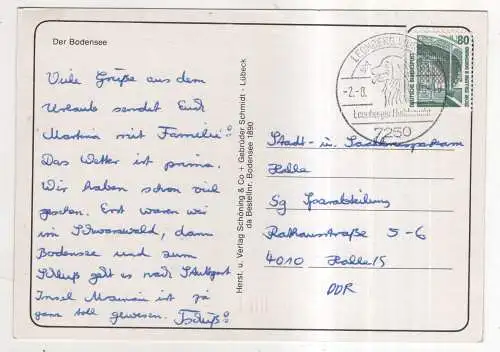 Der Bodensee
Viele Grüße aus dem
Urlaub sendet Euch
Martina mit Familie!
Das Wetter ist prima.
Wir haben schon viel
gesehen. Erst waren wir
im Schwarzwald, dann
Bodensee und zum
Schluß geht es nach Stuttgart
Insel Mainau ist ja
ganz toll gewesen. Tschüß!
Herst. u. Verlag Schöning & Co + Gebrüder Schmidt - Lübeck
da Bestellnr. Bodensee 1890
LEONBERG
-2.-8.
Leonberger
7250
80
DEUTSCHE BUNDESPOST
Stadt- u.
Halle
Sg Sparabteilung
Rathausstraße 5-6
4010 Halle/S
DDR